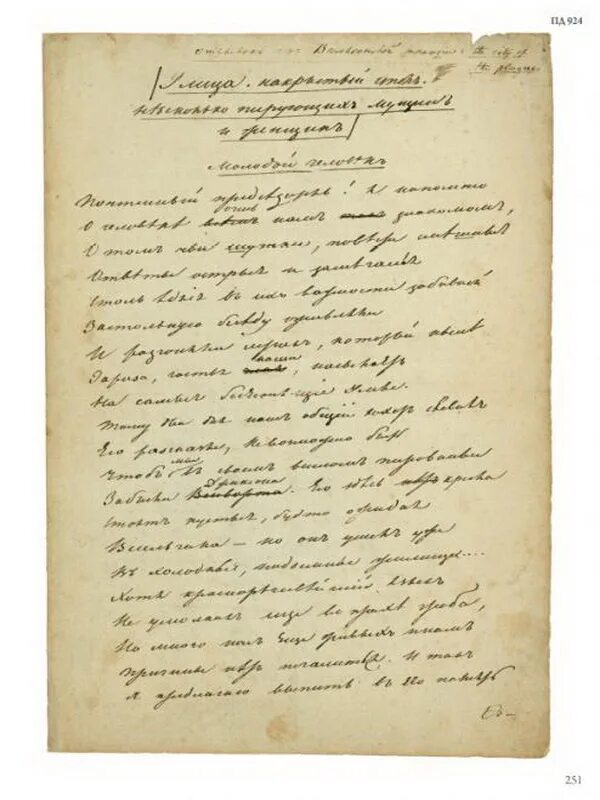 ПД 924
Отрывокъ изъ Вильсоновой трагедіи: the city of
the plague.
Улица. накрытый столъ.
нѣсколько пирующихъ мущинъ
и женщинъ
Молодой человѣкъ
Почтенный предсѣдатель! Я напомню
О человѣкѣ очень намъ знакомомъ,
О томъ чьи шутки, повѣсти смѣшныя
Отвѣты острые и замѣчанья
Столь ѣдкіе въ ихъ важности забавной
Застольную бесѣду оживляли
И разгоняли мракъ, который нынѣ
Зараза, гостья наша, насылаетъ
На самые блестящіе умы.
Тому два дня нашъ общій хохотъ славилъ
Его разсказы, невозможно быть
Чтобъ мы въ своемъ веселомъ пированьи
Забыли Джаксона. Его здѣсь кресла
Стоятъ пустыя, будто ожидая
Весельчака — но онъ ушелъ уже
Въ холодныя, подземныя жилища....
Хотя краснорѣчивѣйшій языкъ
Не умолкалъ еще во прахѣ гроба,
Но много насъ еще живыхъ и намъ
Причины нѣтъ печалиться. И такъ
Я предлагаю выпить въ его память
Съ—
251